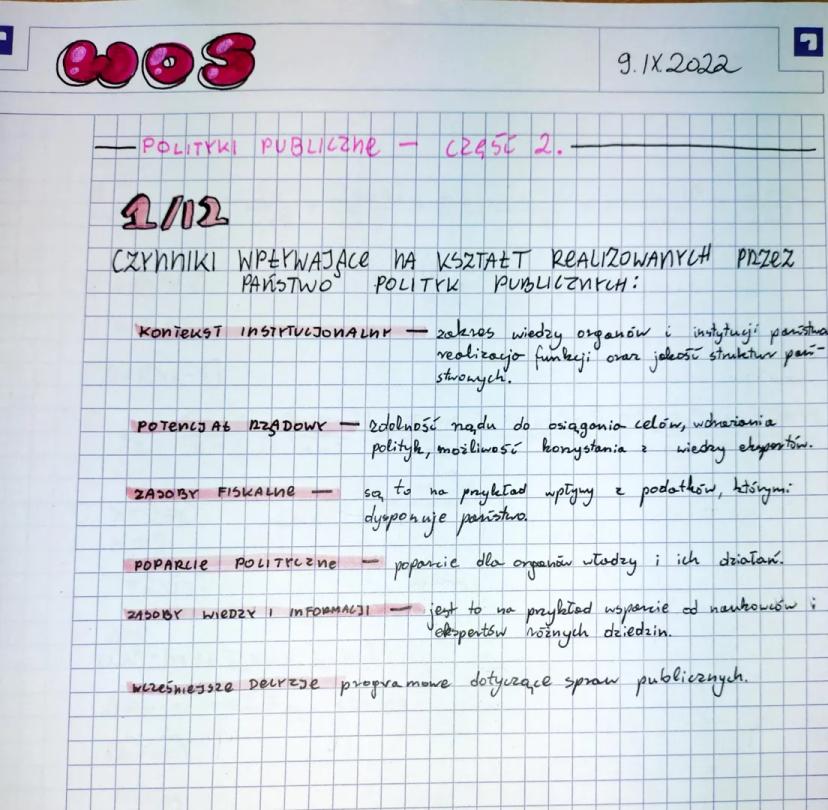 WOS
9.IX.2022
POLITYKI PUBLICZNE - CZĘŚĆ 2.
1/12
CZYNNIKI WPŁYWAJĄCE NA KSZTAŁT REALIZOWANYCH PRZEZ
PAŃSTWO POLITYK PUBLICZNYCH:
KONTEKST INSTYTUCJONALNY — zakres wiedzy organów i instytucji państwa
realizacja funkcji oraz jakość struktur pań-
stwowych.
POTENCJAŁ RZĄDOWY — zdolność rządu do osiągania celów, wdrażania
polityk, możliwość korzystania z wiedzy ekspertów.
ZASOBY FISKALNE — są to na przykład wpływy z podatków, którymi
dysponuje państwo.
POPARCIE POLITYCZNE — poparcie dla organów władzy i ich działań.
ZASOBY WIEDZY I INFORMACJI — jest to na przykład wsparcie od naukowców i
ekspertów różnych dziedzin.
WCZEŚNIEJSZE DECYZJE programowe dotyczące spraw publicznych.